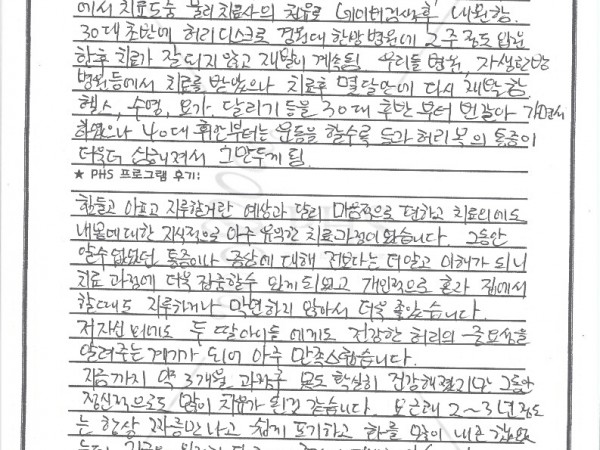 에서 치료도중 물리치료사의 권유로 내원함.
30대 초반에 허리디스크로 경원대 한방병원에 2주 정도 입원
한후 치료가 잘되지 않고 재발이 계속됨. 우리들병원, 자생한방
병원등에서 치료를 받았으나 치료후 몇달만에 다시 재발함.
헬스, 수영, 요가, 달리기 등을 30대 후반부터 번갈아 가면서
하였으나 40대 후반부터는 운동을 할수록 등과 허리 목의 통증이
더욱더 심해져서 그만두게 됨.
★ PHS 프로그램 후기:
힘들고 아프고 지루할거란 예상과 달리 마음적으로 편하고 치료외에도
내몸에대한 지식적으로 아주 유익한 치료과정이었습니다. 그동안
알수없었던 통증이나 증상에 대해 전보다는 더알고 이해가 되니
치료 과정에 더욱 집중할수 있게되었고 개인적으로 혼자 집에서
할때도 지루하거나 막연하지 않아서 더욱 좋았습니다.
저자신 외에도 두 딸아이들에게도 건강한 허리의 중요성을
알려주는 계기가 되어 아주 만족스럽습니다.
지금까지 약 3개월 과정후 몸도 확실히 건강해졌지만 그동안
정신적으로도 많이 치유가 된것 같습니다. 요근래 2~3년정도
는 항상 짜증만나고 쉽게 포기하고 화를 많이 내곤 했었